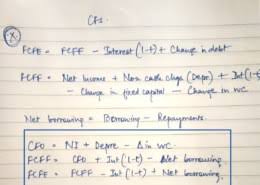 CFs.
Ex.
FCFE = FCFF - Interest (1-t) + Change in debt
FCFF = Net Income + Non cash chgs (Depre) + Int (1-t)
- Change in fixed capital - Change in WC
Net borrowing = Borrowing - Repayments.
CFO = NI + Depre - Δ in WC.
FCFF = CFO + Int (1-t) - Net borrowing
FCFE = FCFF - Int (1-t) + Net borrowing.